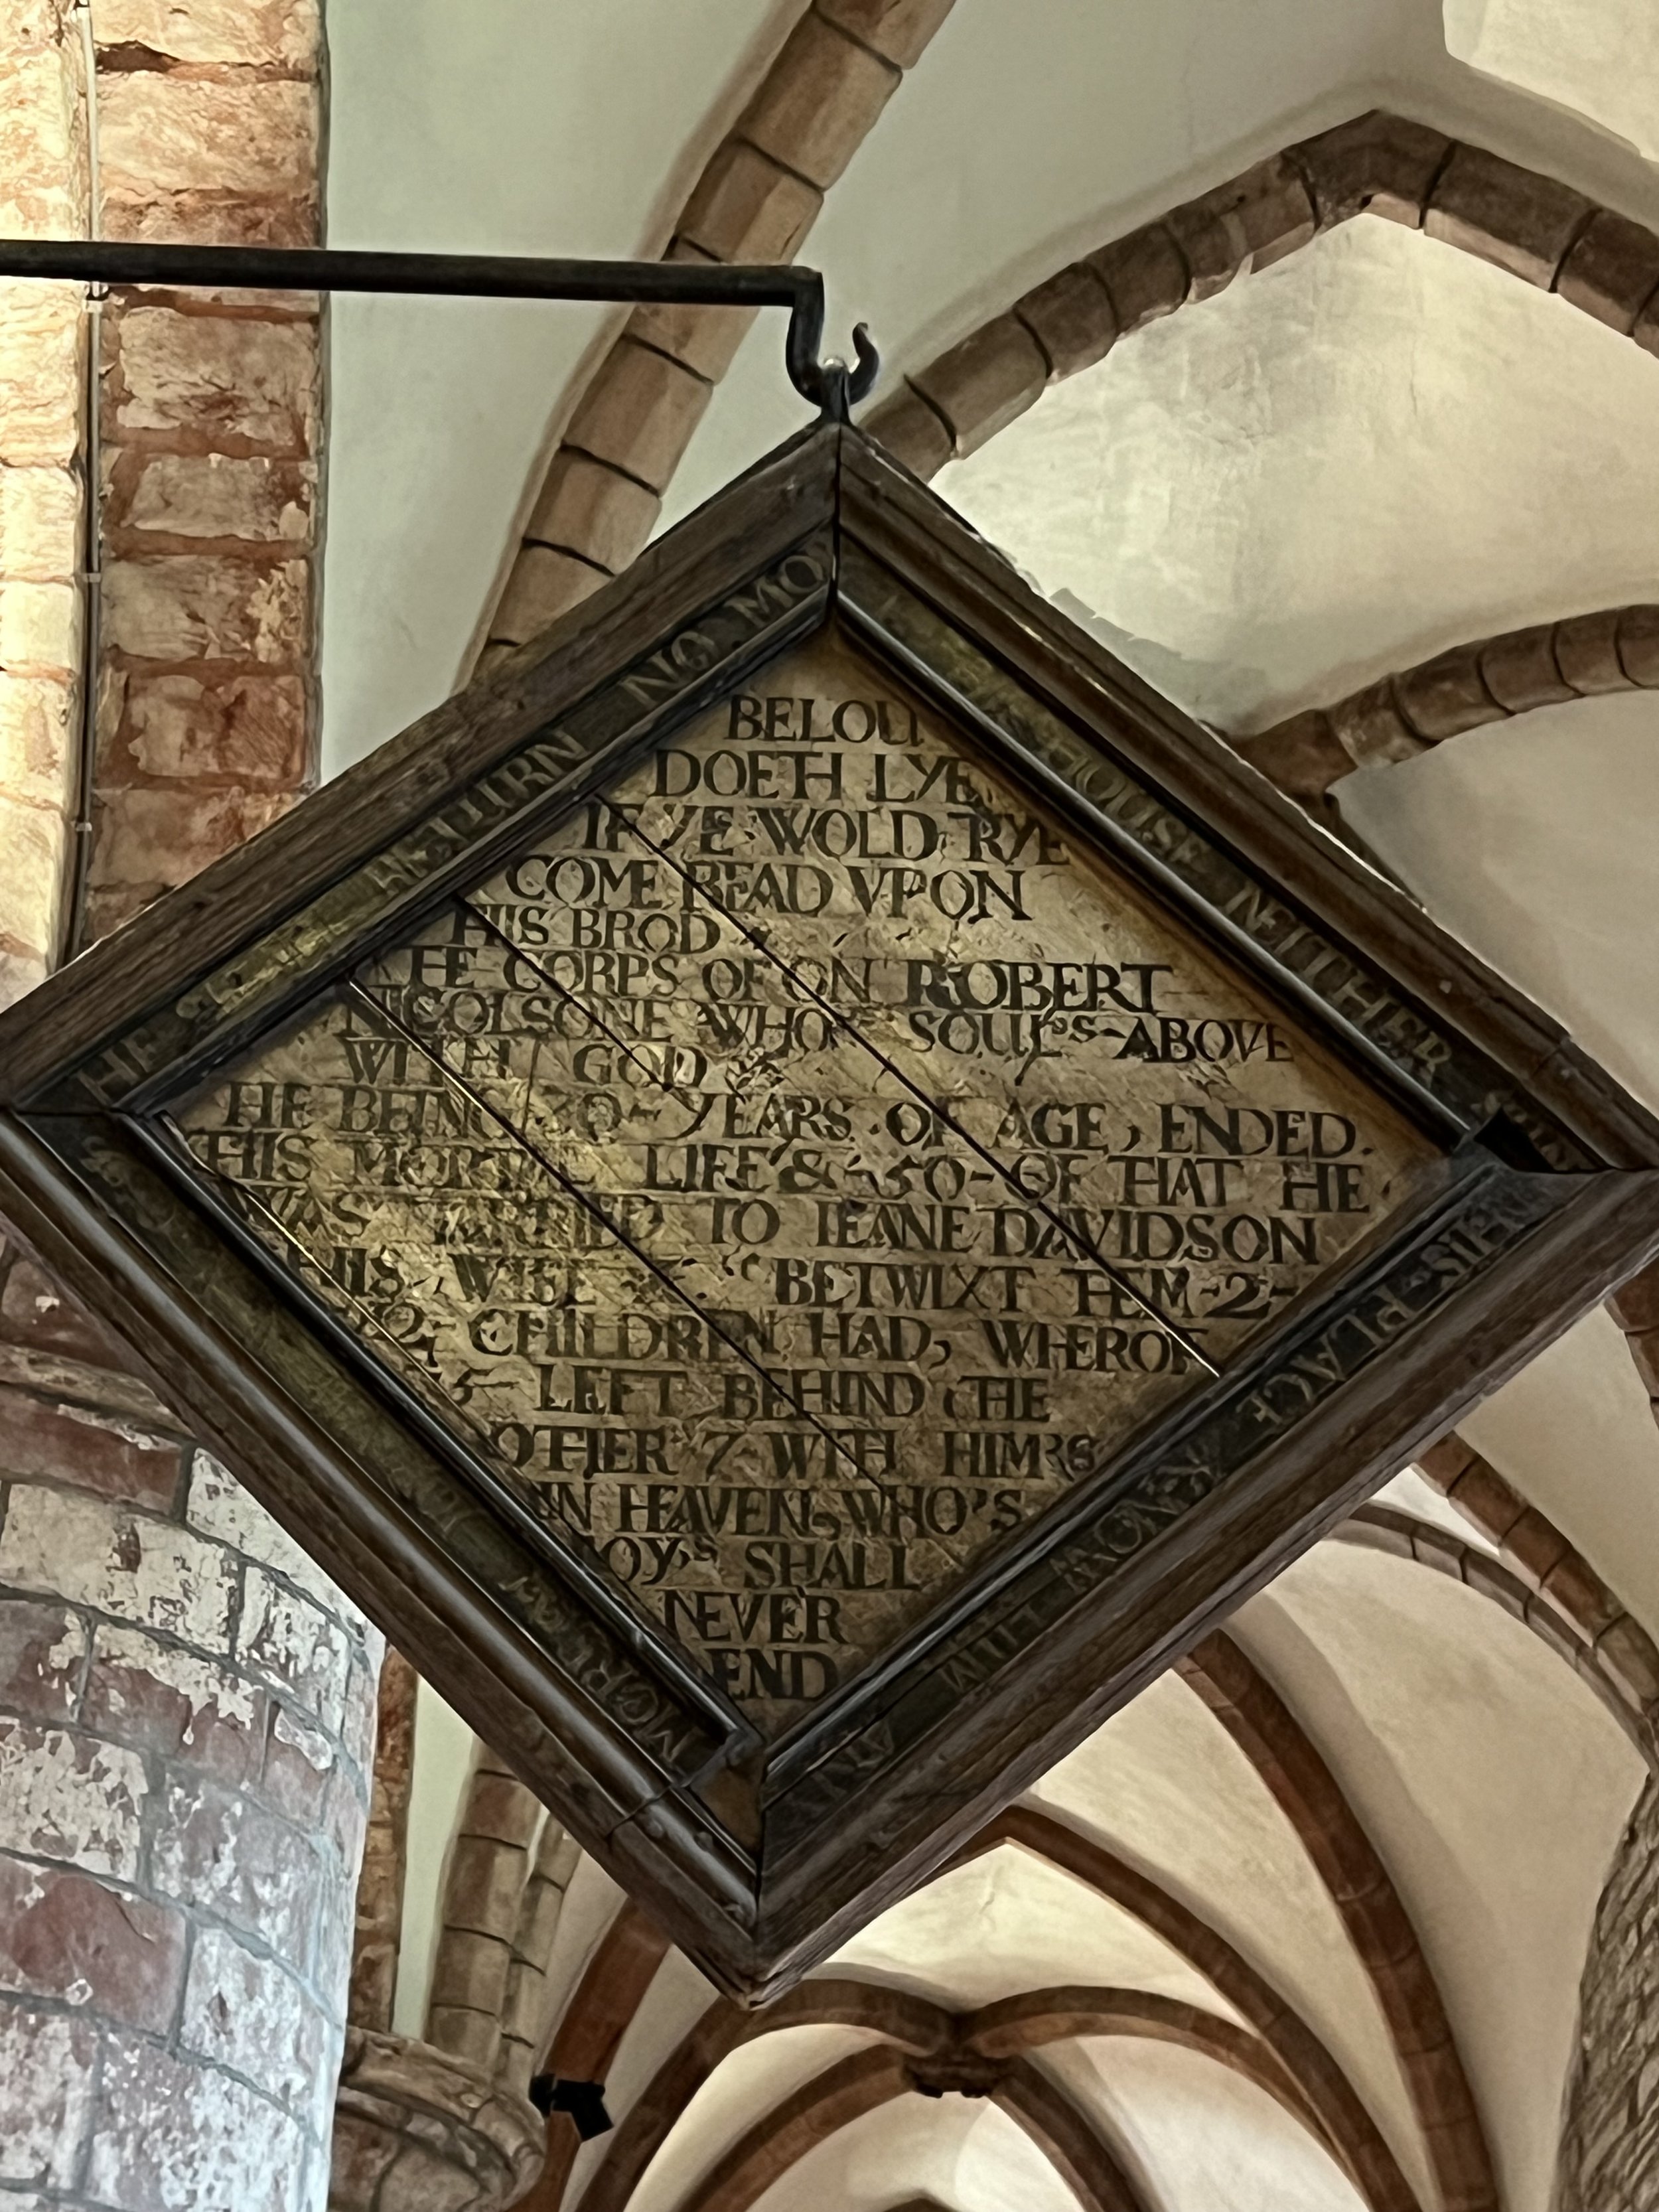 HE RETURN NO MO
HOUSE NEITHER
BELOU
DOETH LYE
IF YE WOLD TRYE
COME READ VPON
THIS BROD
THE CORPS OF ON ROBERT
NICOLSONE WHOS SOUL'S ABOVE
WITH GOD
HE BEING 70 YEARS OF AGE, ENDED
THIS MORTAL LIFE & 50 OF THAT HE
WAS MARRIED TO IEANE DAVIDSON
HIS WIFE BETWIXT THEM 2
12 CHILDREN HAD, WHEROF
5 LEFT BEHIND THE
OTHER 7 WITH HIM'S
IN HEAVEN, WHO'S
IOY'S SHALL
NEVER
END
HIS PLACE KNOW HIM ANY
MORE